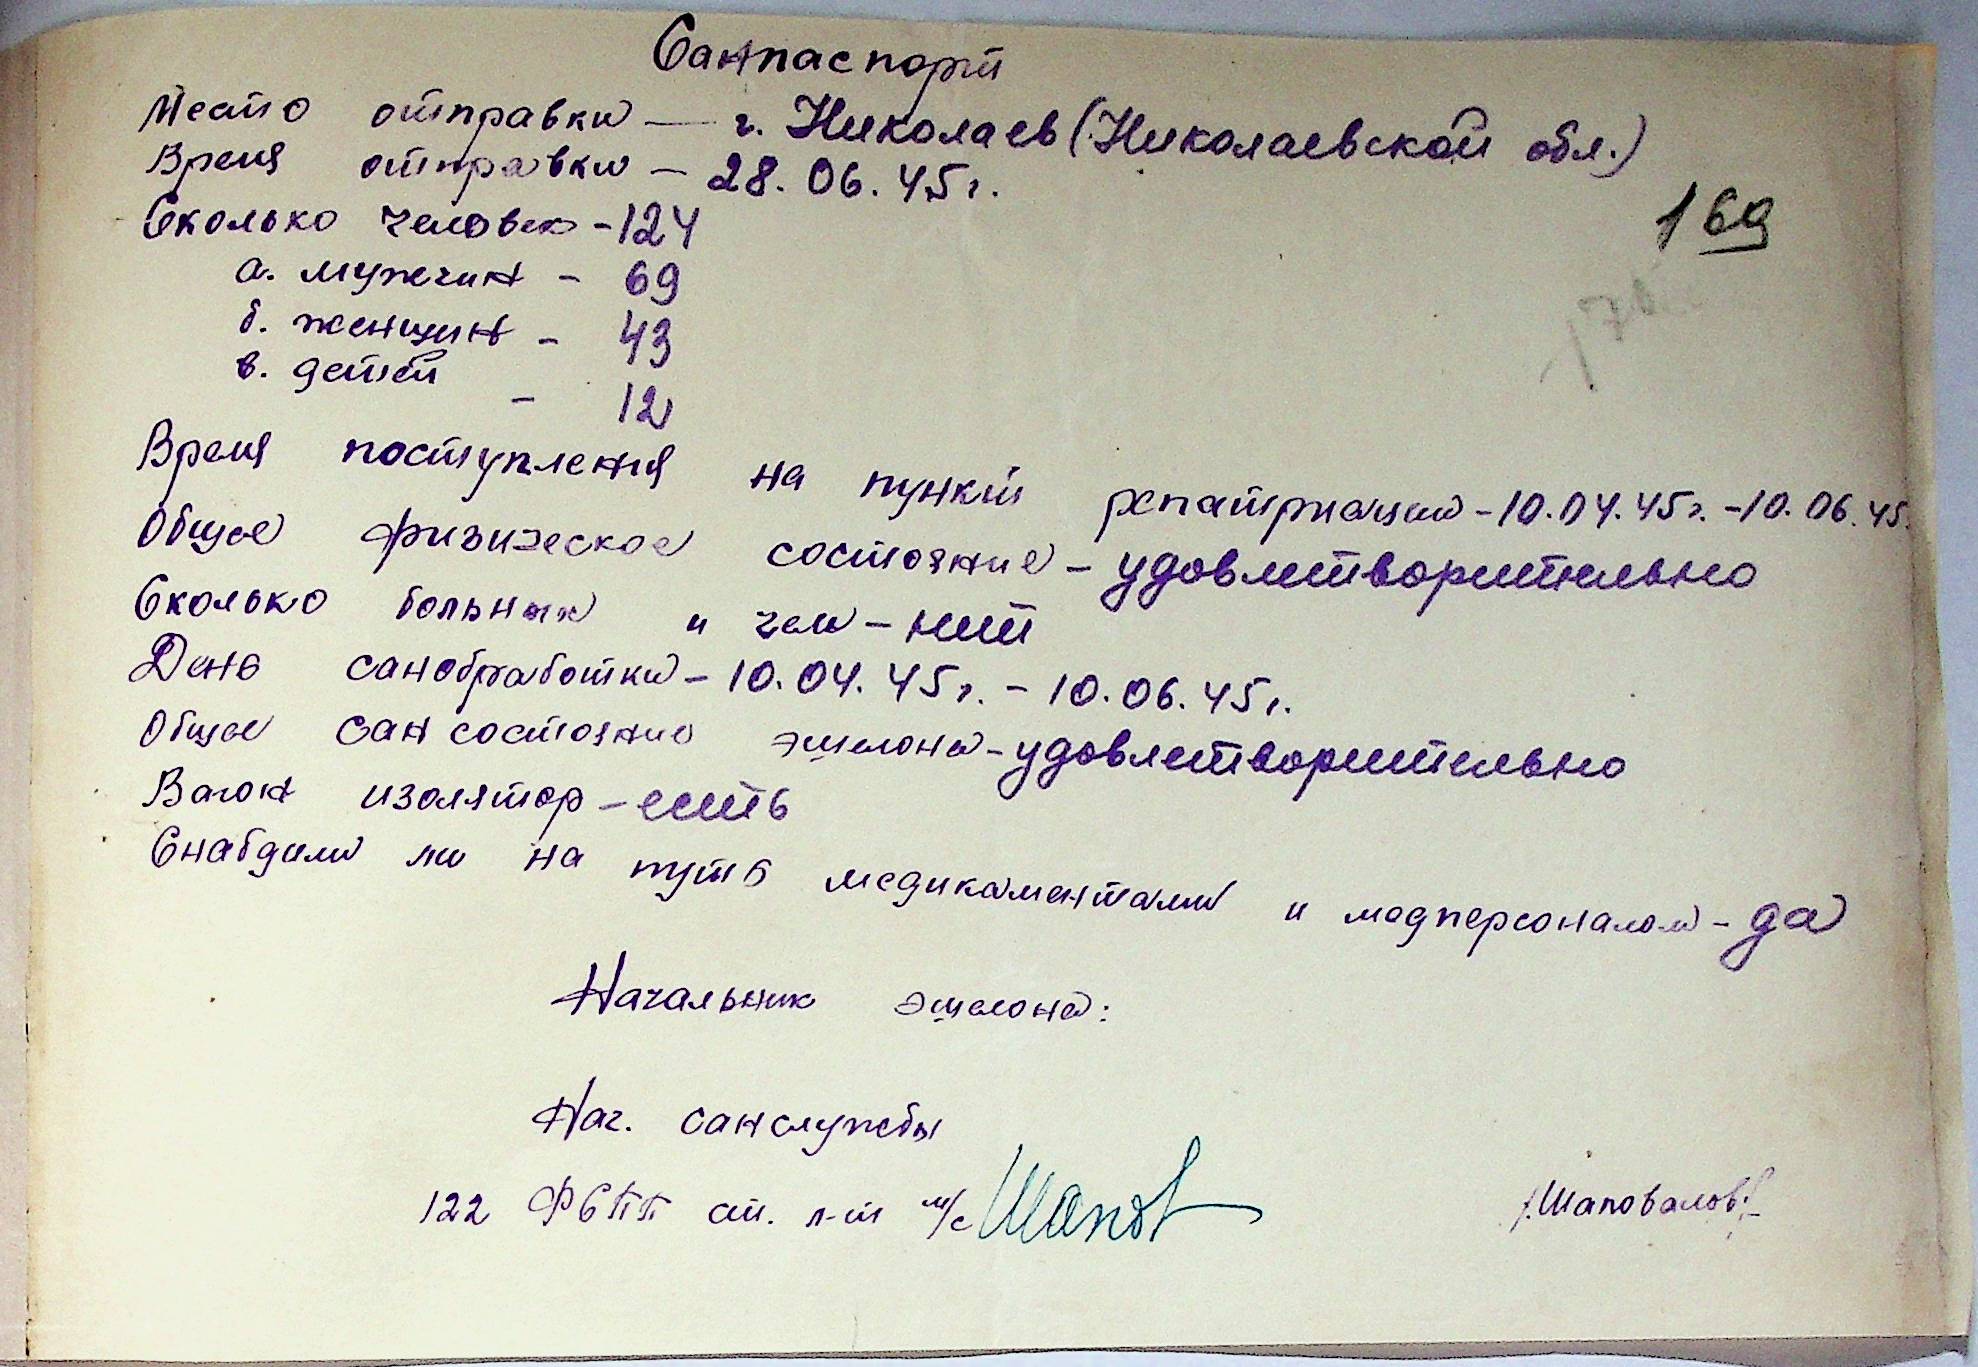 Санпаспорт
Место отправки — г. Николаев (Николаевской обл.)
Время отправки — 28.06.45г.
169
Сколько человек - 124
а. мужчин - 69
б. женщин - 43
в. детей - 12
Время поступления на пункт репатриации - 10.04.45г. - 10.06.45
Общее физическое состояние - удовлетворительно
Сколько больных и чем - нет
День санобработки - 10.04.45г. - 10.06.45г.
Общее сан состояние эшелона - удовлетворительно
Вагон изолятор - есть
Снабдили ли на путь медикаментами и медперсоналом - да
Начальник эшелона:
Нач. санслужбы
122 ФСПП ст. л-т м/с Шапов /Шаповалов/